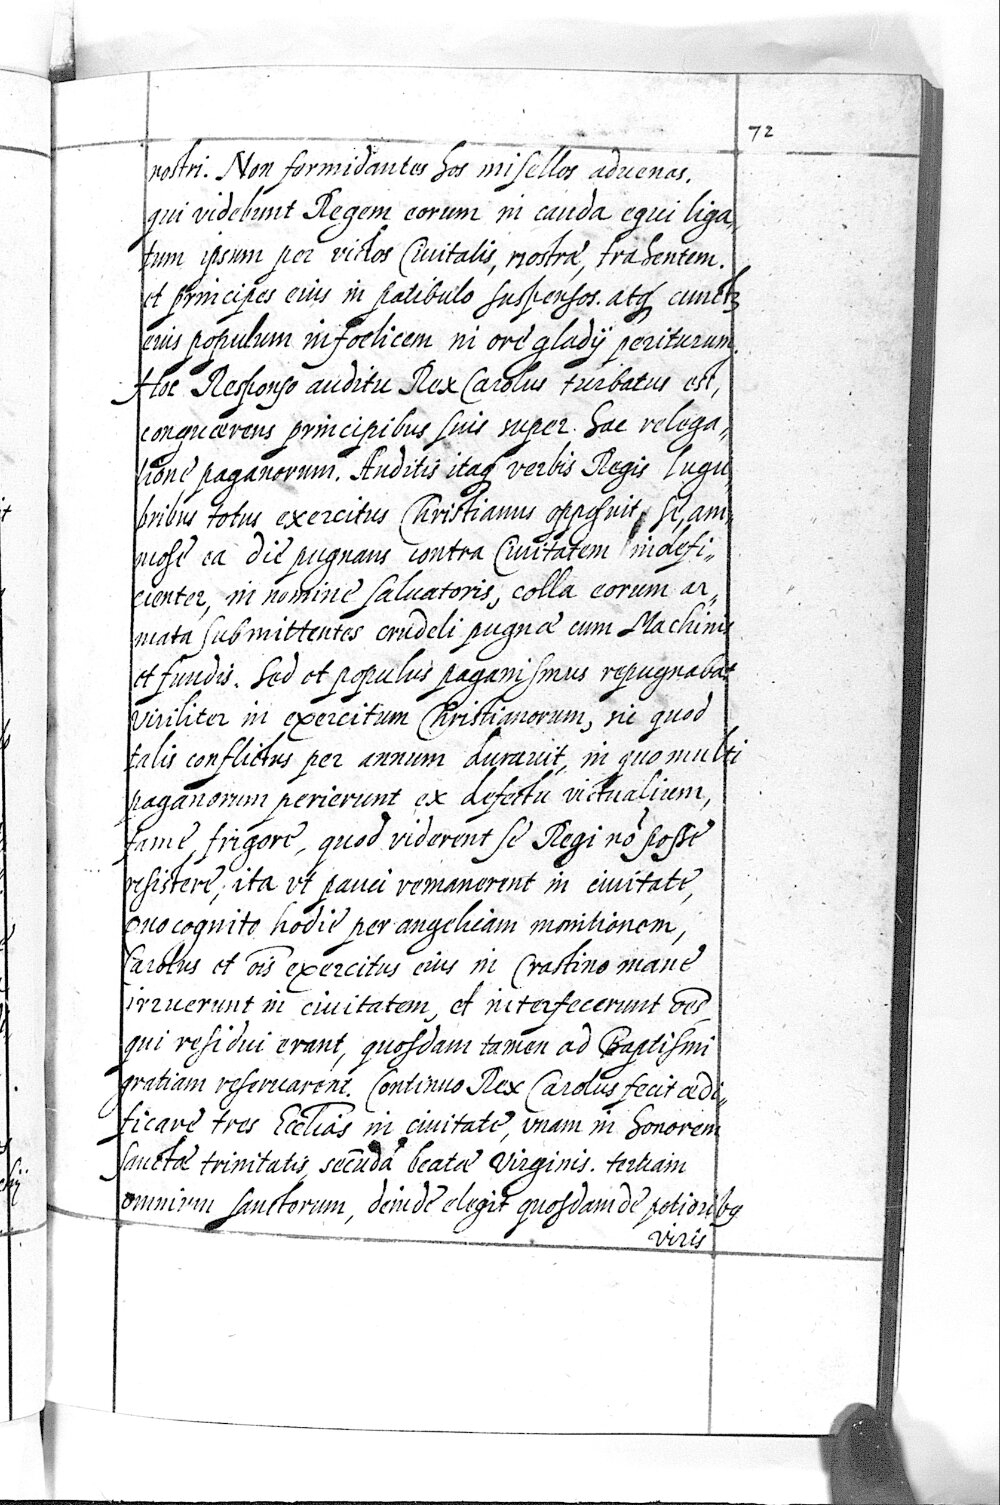 72
nostri. Non formidantes hos misellos aduenas.
qui videbunt Regem eorum in cauda equi liga„
tum ipsum per victos Ciuitatis, nostræ, trahentem.
et principes eius in patibulo suspensos. atq cunctū
eius populum infoelicem in ore gladij periturum.
Hoc Responso auditu Rex Carolus turbatus est,
conquærens principibus suis super hac relega„
tione paganorum. Auditis itaq verbis Regis lugu„
bribus totus exercitus Christianus opposuit se, ani„
mose ea die pugnans contra Ciuitatem indefi„
cienter, in nomine saluatoris, colla eorum ar„
mata submittentes crudeli pugnæ cum Machinis
et fundis. Sed et populus paganismus repugnabat
viriliter in exercitum Christianorum, sic quod
talis conflictus per annum durauit, in quo multi
paganorum perierunt ex defectu victualium,
fame, frigore, quod viderent se Regi nō posse
resistere, ita vt pauci remanerent in ciuitate,
Quo cognito hodie per angelicam monitionem,
Carolus et oīs exercitus eius in Crastino mane
irruerunt in ciuitatem, et interfecerunt oēs,
qui residui erant, quosdam tamen ad Baptismi
gratiam reseruarent. Continuo Rex Carolus fecit ædi„
ficare tres Eccl̄ias in ciuitate, vnam in honorem
sanctæ trinitatis, secūdā beatæ Virginis. tertiam
omnium sanctorum, deinde elegit quosdam de potioribq
viris